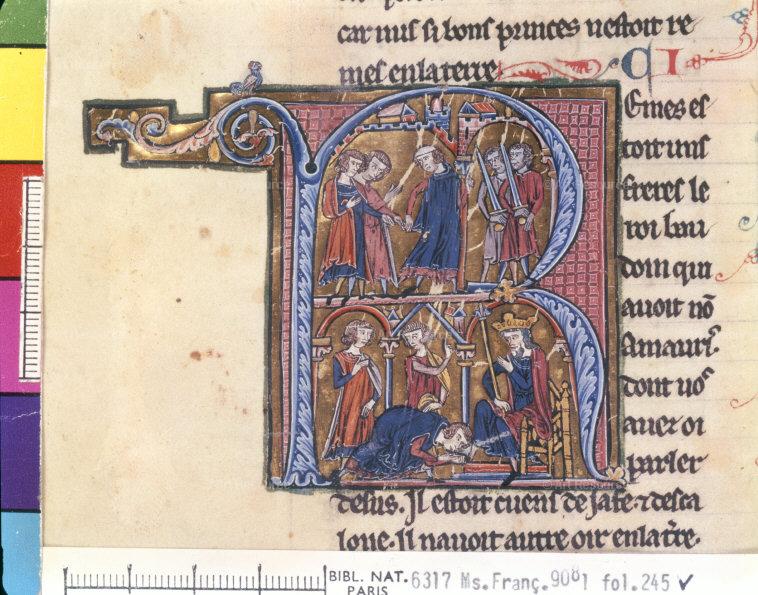 car nus si bons princes nestoit re
mes en la terre
CI
Emes es
toit uns
freres le
roi bau
doin qui
auoit nō
Amauri.
dont uoˢ
auez oi
parler
desus. Il estoit cuens de Jafe ⁊ desca
lone. Il nauoit autre oir en la t̄re.
BIBL. NAT. 6317 Ms. Franç. 9081 fol. 245
PARIS